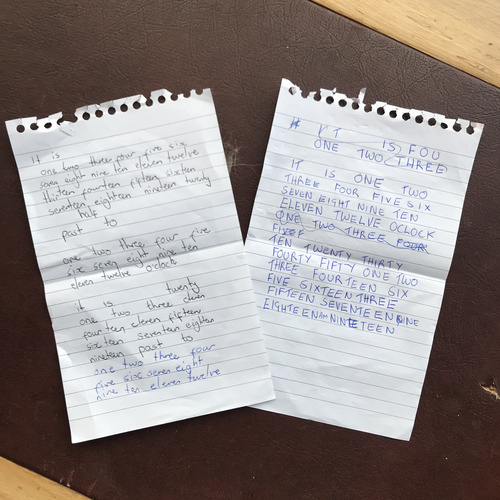 it is
one two three four five six
seven eight nine ten eleven twelve
thirteen fourteen fifteen sixteen
seventeen eighteen nineteen twenty
half
past to
one two three four five
six seven eight nine ten
eleven twelve o'clock
it is twenty
one two three eleven
fourteen eleven fifteen
sixteen seventeen eighteen
nineteen past to
one two three four
five six seven eight
nine ten eleven twelve
IS, FOU
ONE TWO (THREE)
IT IS ONE TWO
THREE FOUR FIVE SIX
SEVEN EIGHT NINE TEN
ELEVEN TWELVE OCLOCK
ONE TWO THREE FOUR
TEN TWENTY THIRTY
FOURTY FIFTY ONE TWO
THREE FOURTEEN SIX
FIVE SIXTEEN THREE
FIFTEEN SEVENTEEN NINE
EIGHTEEN NINETEEN